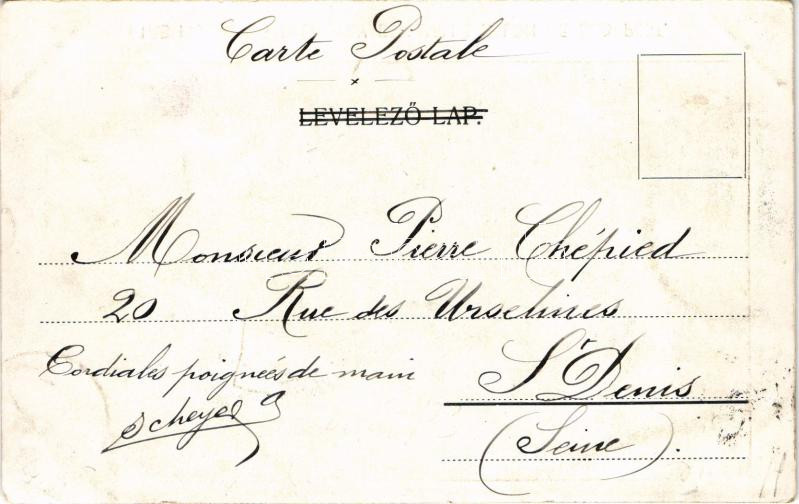 Carte Postale
LEVELEZŐ-LAP.
Monsieur Pierre Chépied
20 Rue des Urselines
Cordiales poignées de main
St Denis
(Seine).